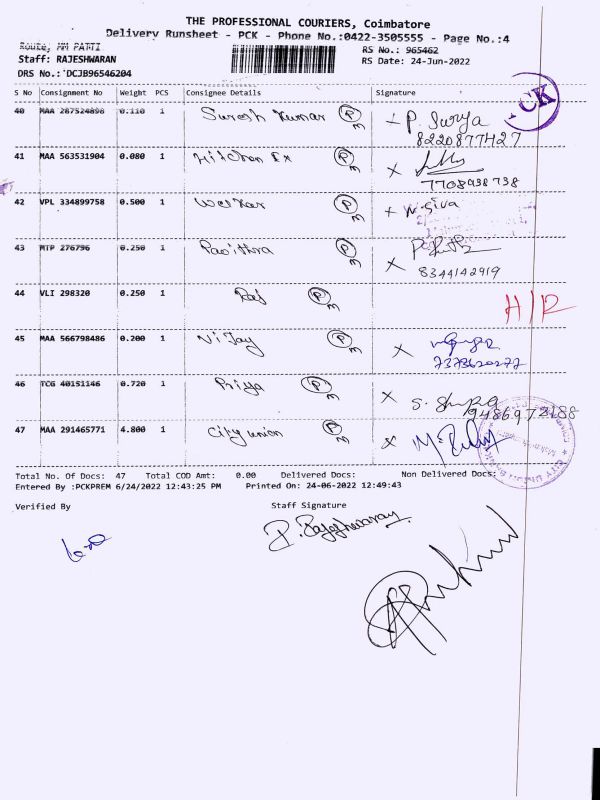 THE PROFESSIONAL COURIERS, Coimbatore
Delivery Runsheet - PCK - Phone No.:0422-3505555 - Page No.:4
Route, MM PATTI
RS No.: 965462
Staff: RAJESHWARAN
RS Date: 24-Jun-2022
DRS No.: DCJB96546204
S No Consignment No Weight PCS Consignee Details Signature
40 MAA 287524898 0.110 1 Suresh Kumar P M P. Surya
8220877427
PCK
41 MAA 563531904 0.080 1 P M
7708938738
42 VPL 334899758 0.500 1 P M N-Siva
43 MTP 276796 0.250 1 Pavithra P M
8344142919
44 VLI 298320 0.250 1 Raj P M H/R
45 MAA 566798486 0.200 1 Vijay P M
7373620277
46 TCG 40151146 0.720 1 Priya P M S.
9486972188
47 MAA 291465771 4.800 1 City union P M
CITY UNION BANK
Total No. Of Docs: 47 Total COD Amt: 0.00 Delivered Docs: Non Delivered Docs:
Entered By :PCKPREM 6/24/2022 12:43:25 PM Printed On: 24-06-2022 12:49:43
Verified By Staff Signature
P. Rajeshwaran